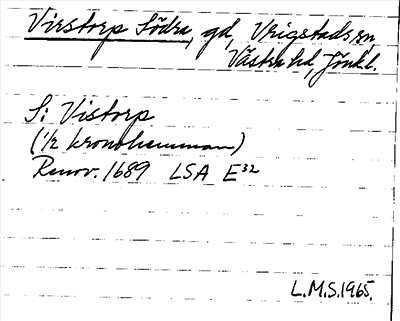 Virstorp Södra, gd, Vrigstads sn,
Västra hd, Jönkl.
S: Vistorp
(1/2 kronohemman)
Renov. 1689 LSA E32
L.M.S. 1965.